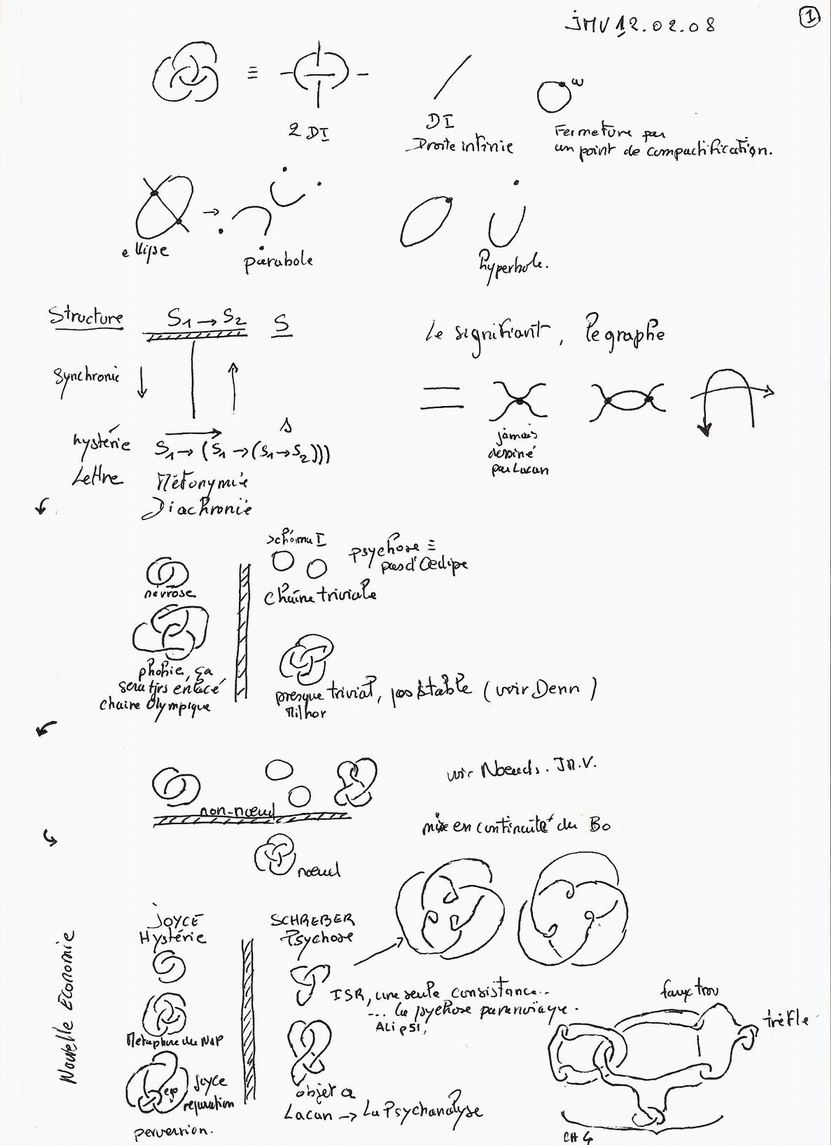 1
JMV 12.02.08
≡
2 DI
DI
Droite infinie
ω
Fermeture par
un point de compactification.
ellipse
→
parabole
hyperbole.
Structure
S1 → S2
S
Synchronie
Le signifiant, le graphe
hystérie
s
S1 → (S1 → (S1 → S2)))
Lettre
Métonymie
Diachronie
jamais
dessiné
par Lacan
schéma I
psychose ≡
pas d'Oedipe
chaîne triviale
névrose
phobie, ça
sera tjrs enlacé
chaine Olympique
presque trivial, pas stable (voir Denn)
Milnor
voir Noeuds. J.M.V.
non-noeud
mise en continuité du Bo
noeud
Nouvelle Economie
JOYCE
Hystérie
SCHREBER
Psychose
ISR, une seule consistance...
... la psychose paranoïaque.
ALI p51,
Métaphore du NdP
ego
Joyce
réparation
perversion.
objet a
Lacan → La Psychanalyse
faux trou
trèfle
CH 4